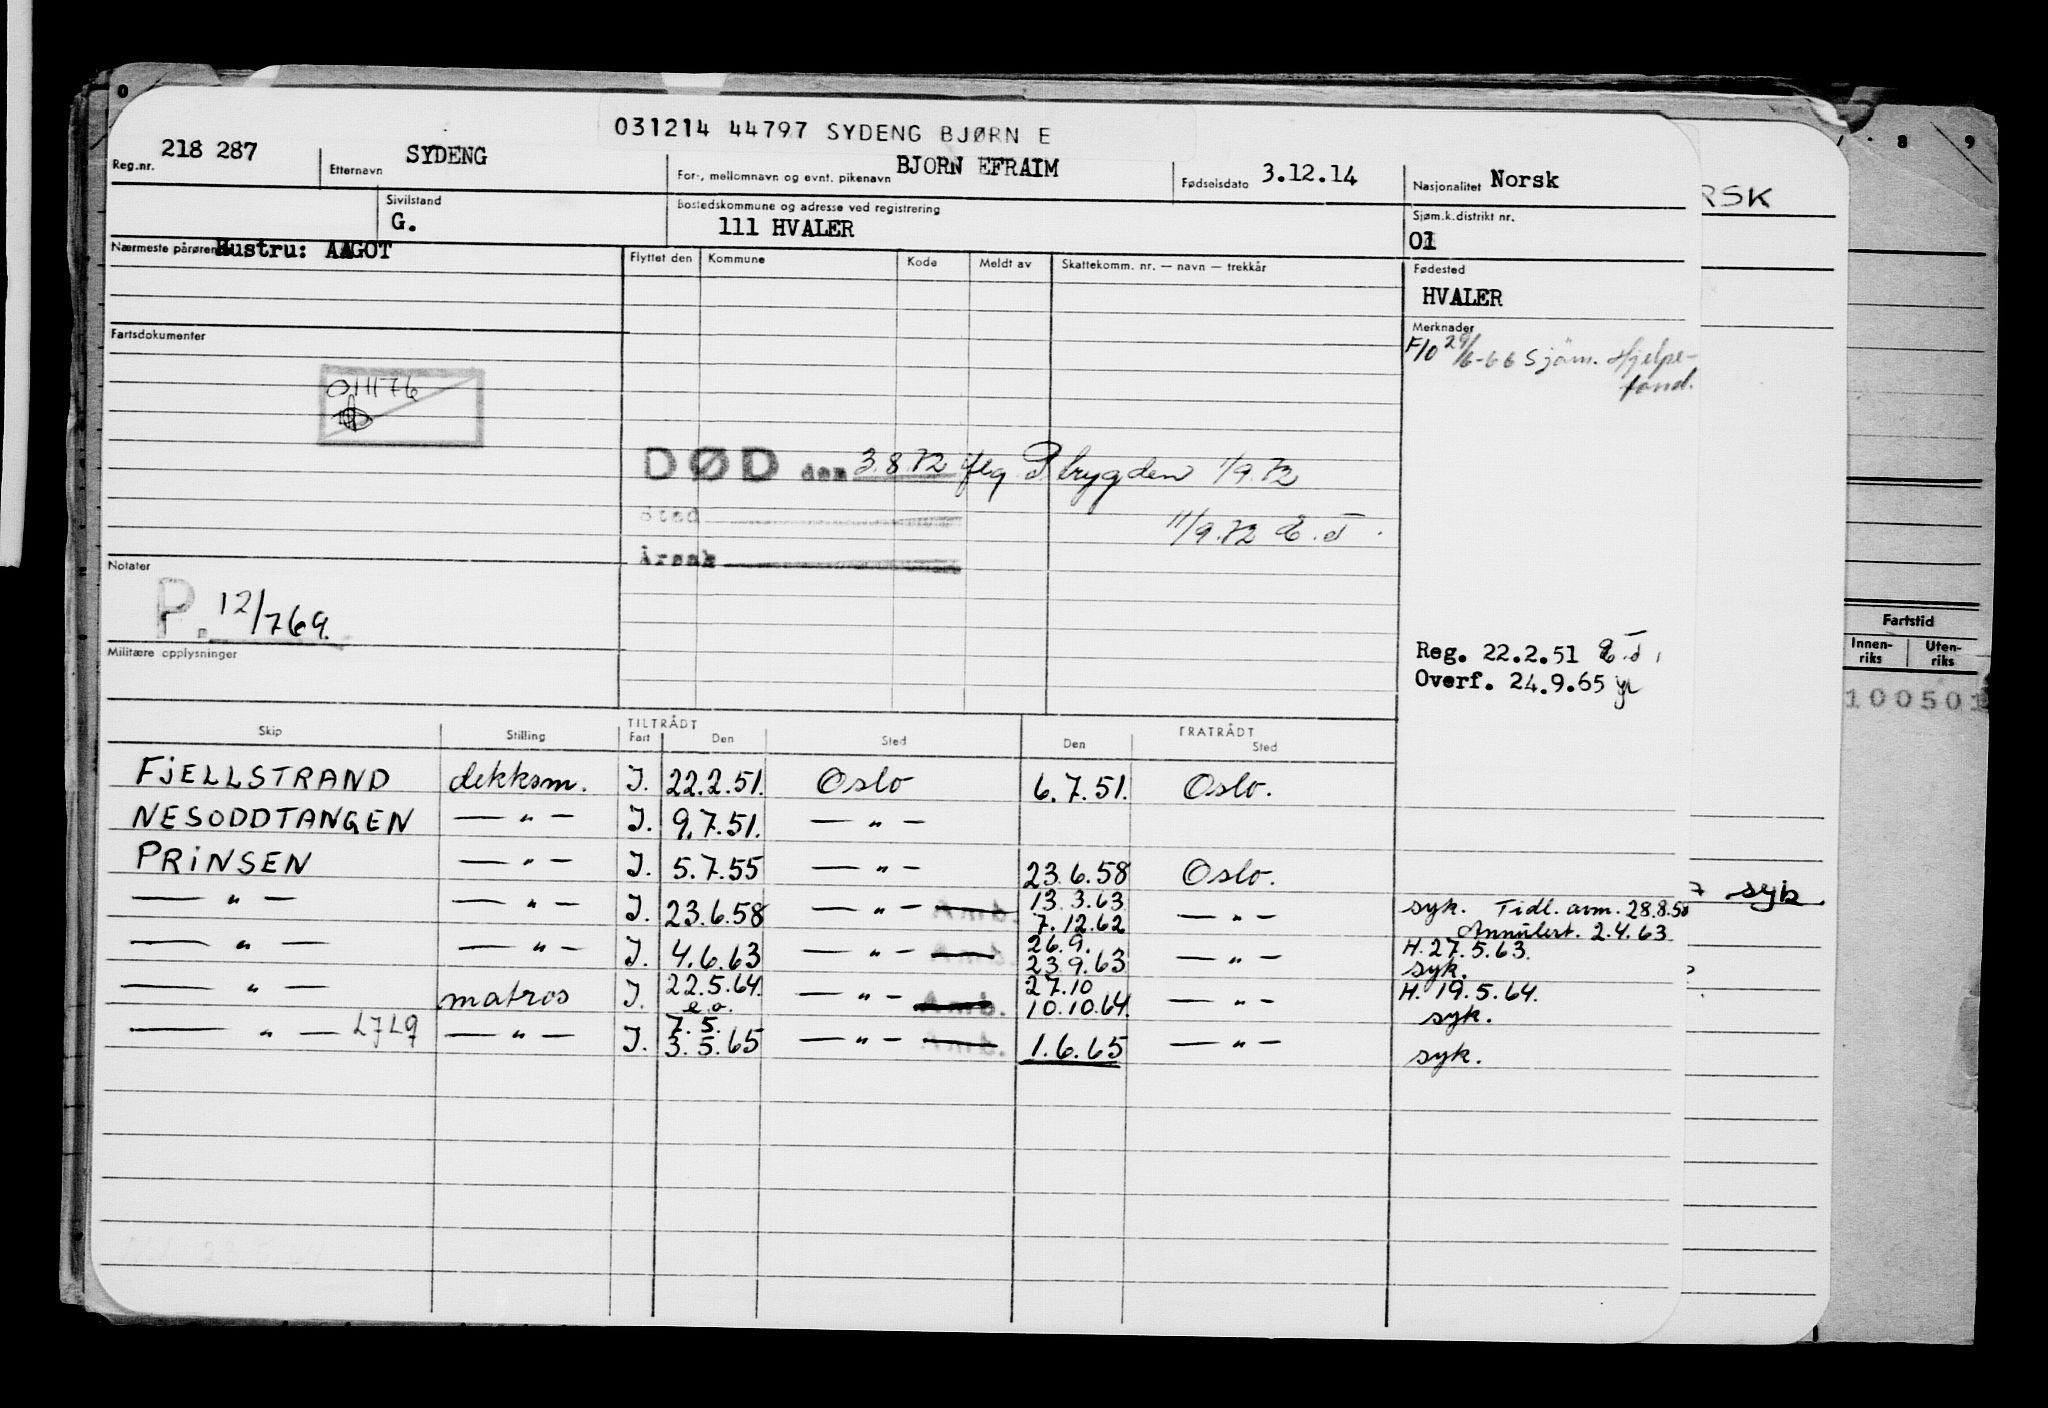 031214 44797 SYDENG BJØRN E
Reg.nr. 218 287 Etternavn SYDENG For-, mellomnavn og evnt. pikenavn BJORN EFRAIM Fødselsdato 3.12.14 Nasjonalitet Norsk
Sivilstand G. Bostedskommune og adresse ved registrering 111 HVALER Sjøm.k.distrikt nr. 01
Nærmeste pårøren Hustru: AAGOT Flyttet den Kommune Kode Meldt av Skattekomm. nr. — navn — trekkår Fødested
HVALER
Fartsdokumenter
Merknader
F/0 29/6-66 Sjøm. Hjelpe-
fond.
011176
DØD den 3.8.72 flg. P.brygden 1/9.72
Sted 11/9.72
Årsak
Notater
P. 12/769.
Militære opplysninger
Reg. 22.2.51
Overf. 24.9.65
Skip Stilling TILTRÅDT Fart Den Sted FRATRÅDT Den Sted
FJELLSTRAND dekksm. I. 22.2.51. Oslo 6.7.51. Oslo.
NESODDTANGEN — " — I. 9.7.51. — " —
PRINSEN — " — I. 5.7.55 — " — 23.6.58 Oslo.
— " — — " — I. 23.6.58 — " — Amb. 13.3.63 7.12.62 — " — syk. Tidl. avm. 28.8.58
Annulert. 2.4.63
— " — — " — I. 4.6.63 — " — 26.9. 23.9.63 — " — H. 27.5.63.
syk.
— " — matros I. 22.5.64. e.o. — " — Amb. 27.10 10.10.64. — " — H. 19.5.64.
syk.
— " — LJLQ — " — I. 7.5. 3.5.65 — " — 1.6.65 — " — syk.
RSK
8 9
syk.
Fartstid
Innen-
riks
Uten-
riks
100501